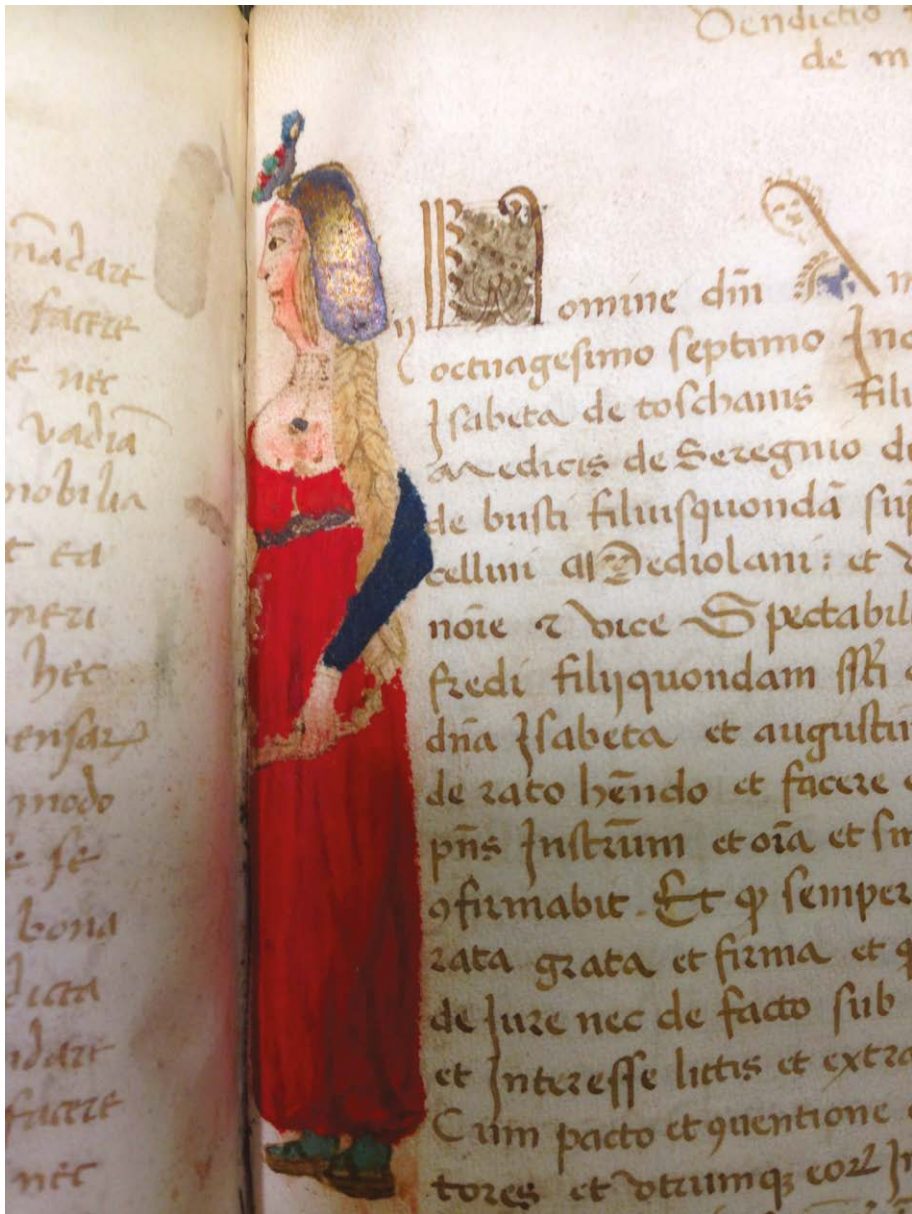 mādare
facere
e nec
vadiā
mobilia
t ea
hec
modo
e se
bona
dicta
ndare
facere
nec
Venditio
de m
In Nomine dm̄ A m
octuagesimo septimo Ind
Isabeta de toschanis filia
Medicis de Seregnio d
de busti filiusquondā
cellini Mediolani: et
nōie ⁊ vice Spectabil
fredi filijquondam
dn̄a Isabeta et augustin
de rato hēndo et facere
pn̄s Instrum̄ et oīa et sin
ꝯfirmabit. Et ꝙ semper
rata grata et firma et
de Jure nec de facto sub
et Interesse littis et extra
Cum pacto et ꝯuentione
tores et vtrumqꝫ eoꝝ In